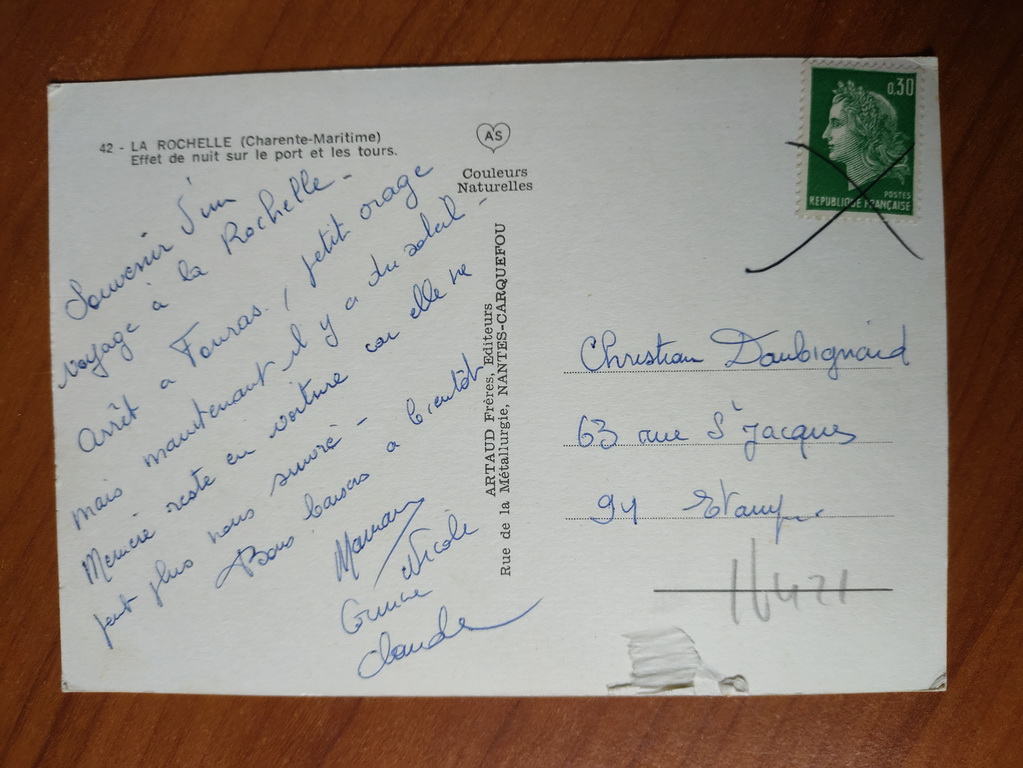 42 - LA ROCHELLE (Charente-Maritime)
Effet de nuit sur le port et les tours.
A S
Couleurs
Naturelles
0,30
POSTES
REPUBLIQUE FRANÇAISE
Souvenir d'un
voyage à la Rochelle -
Arrêt a Fouras, petit orage
mais maintenant il y a du soleil -
Mémère reste en voiture car elle ne
peut plus nous suivre -
Bons baisers a bientôt
Maman
Nicole
Claude
ARTAUD Frères, Editeurs
Rue de la Métallurgie, NANTES-CARQUEFOU
Christian Daubignard
63 rue St Jacques
91 Etampes